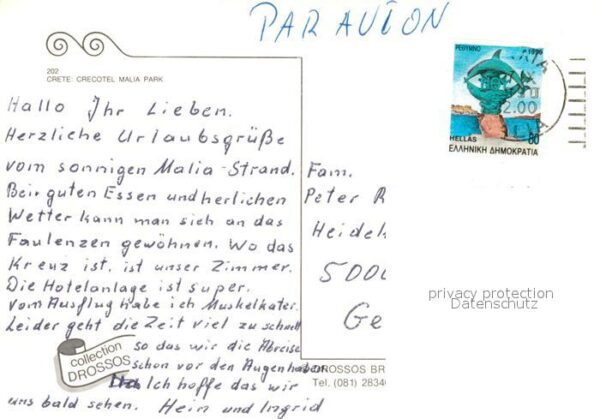 PAR AVION
202
CRETE: CRECOTEL MALIA PARK
Hallo Ihr Lieben.
Herzliche Urlaubsgrüße
vom sonnigen Malia-Strand.
Beir guten Essen und herlichen
Wetter kann man sich an das
Faulenzen gewöhnen. Wo das
Kreuz ist, ist unser Zimmer.
Die Hotelanlage ist super.
vom Ausflug habe ich Muskelkater.
Leider geht die Zeit viel zu schnell
so das wir die Abreise
schon vor den Augen haben.
Ich hoffe das wir
uns bald sehen. Hein und Ingrid
collection
DROSSOS
ΡΕΘΥΜΝΟ 1990
2.00
HELLAS 80
ΕΛΛΗΝΙΚΗ ΔΗΜΟΚΡΑΤΙΑ
Fam.
Peter R
Heidek
5000
Ge
privacy protection
Datenschutz
DROSSOS BR
Tel. (081) 2834